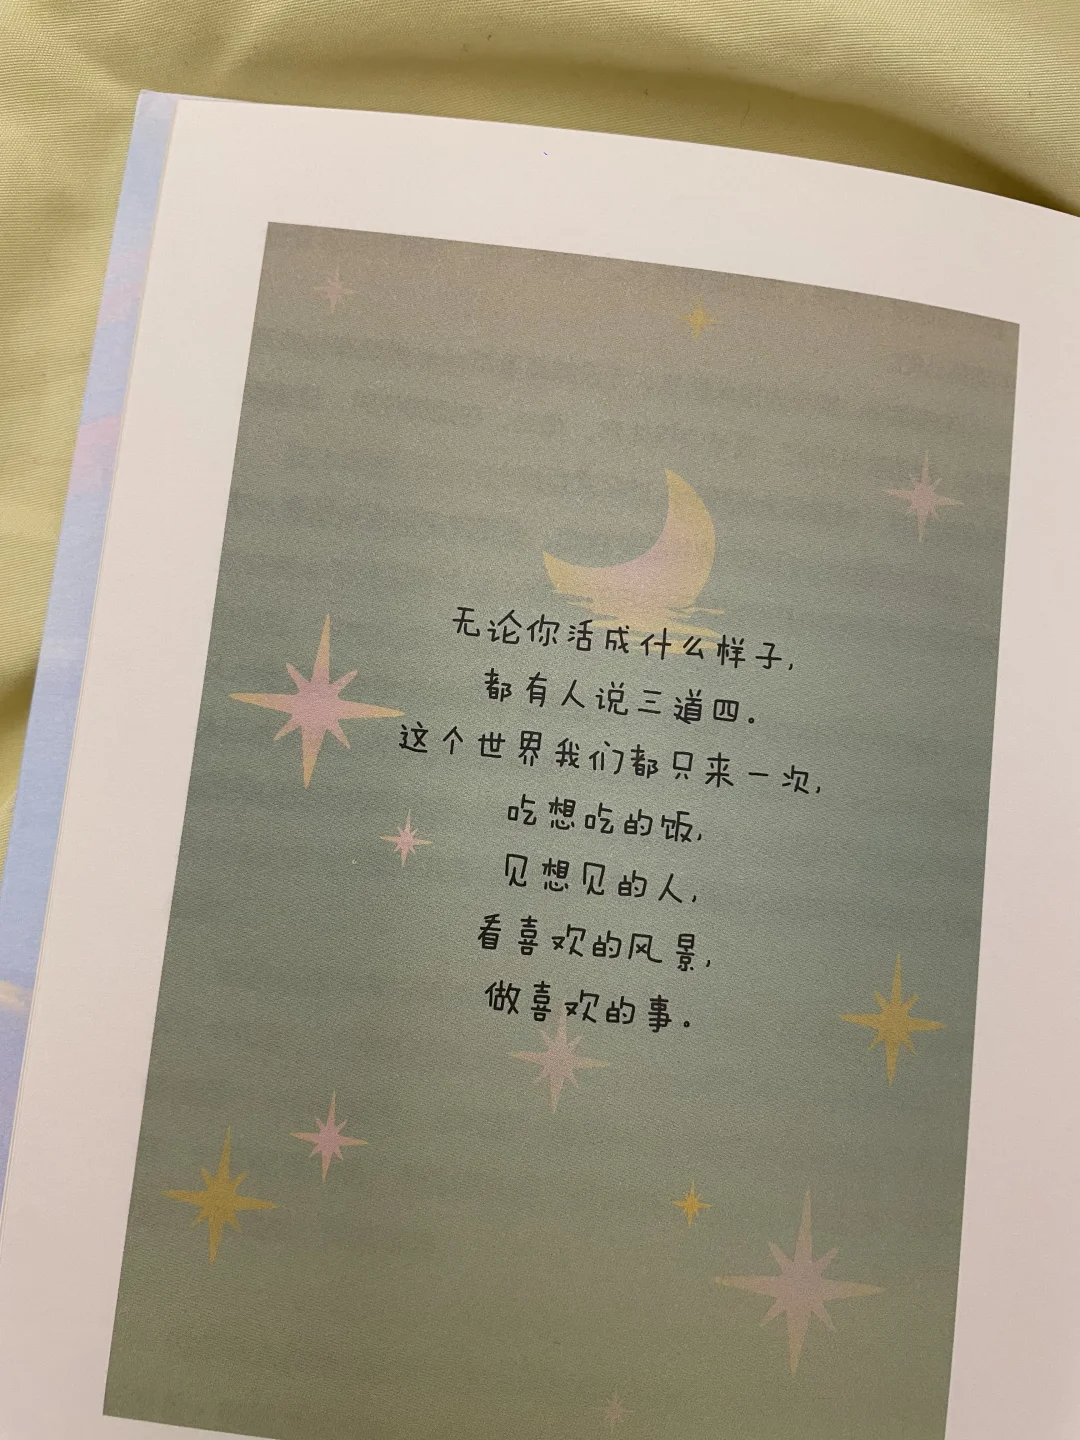 无论你活成什么样子,
都有人说三道四。
这个世界我们都只来一次,
吃想吃的饭,
见想见的人,
看喜欢的风景,
做喜欢的事。